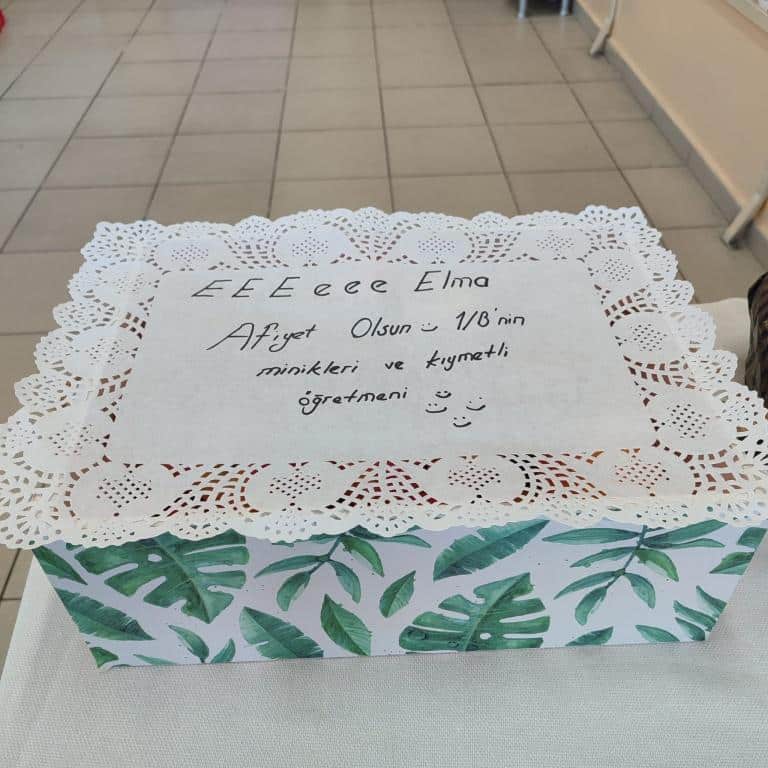 EEEeee Elma
Afiyet Olsun 1/B'nin
minikleri ve kıymetli
öğretmeni